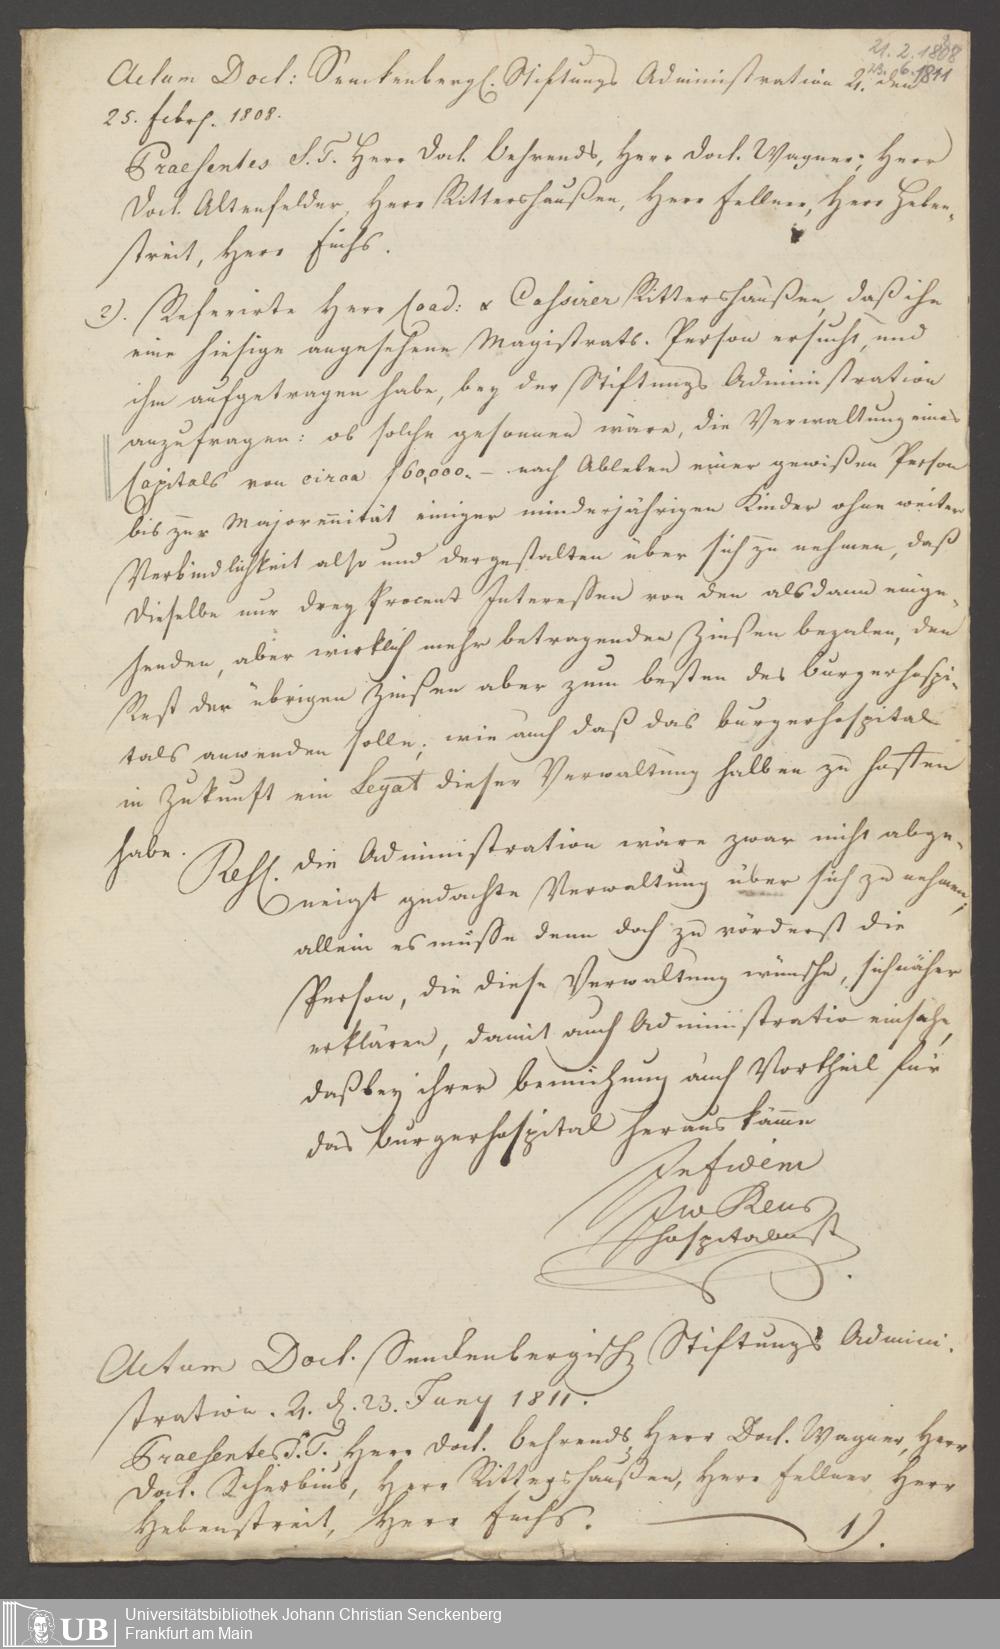 21. 2. 1808
23. 6. 1811
Actum Doct: Senckenbergl. Stiftungs Administration ♃. den
25. febr. 1808.
Praesentes S. T. Herr Doct. Behrends, Herr Doct. Wagner, Herr
Doct. Altenfelder, Herr Rittershaußen, Herr Fellner, Herr Heben-
streit, Herr Fuchs.
2). Referirte Herr Coad: & Cassirer Rittershaußen, daß ihn
eine hiesige angesehene Magistrats-Person ersucht, und
ihm aufgetragen habe, bey der Stiftungs Administration
anzufragen: ob solche gesonnen wäre, die Verwaltung eines
Capitals von circa f 60,000. – nach Ableben einer gewißen Person
bis zur Majorennität einiger minderjährigen Kinder ohne weitere
Verbindlichkeit also und dergestalten über sich zu nehmen, daß
dieselbe nur drey Procent Interessen von den alsdann einge-
henden, aber wirklich mehr betragenden Zinßen bezalen, den
Rest der übrigen Zinßen aber zum besten des Burgerhospi-
tals anwenden solle; wie auch daß das Burgerhospital
in Zukunft ein Legat dieser Verwaltung halben zu hoffen
habe.
Resl. die Administration wäre zwar nicht abge-
neigt gedachte Verwaltung über sich zu nehmen,
allein es müsse denn doch zu vörderst die
Person, die diese Verwaltung wünsche, sich näher
erklären, damit auch Administratio einsähe,
daß bey ihrer bemühung auch Vortheil für
das Burgerhospital heraus käme
In fidem
Hospitalmst
Actum Doct. Senckenbergisch Stiftungs Admini-
stration. ♃. d. 23. Juny 1811.
Praesentes S. T. Herr Doct. Behrends, Herr Doct. Wagner, Herr
Doct. Scherbius, Herr Rittershaußen, Herr Fellner, Herr
Hebenstreit, Herr Fuchs.
1).
UB
Universitätsbibliothek Johann Christian Senckenberg
Frankfurt am Main